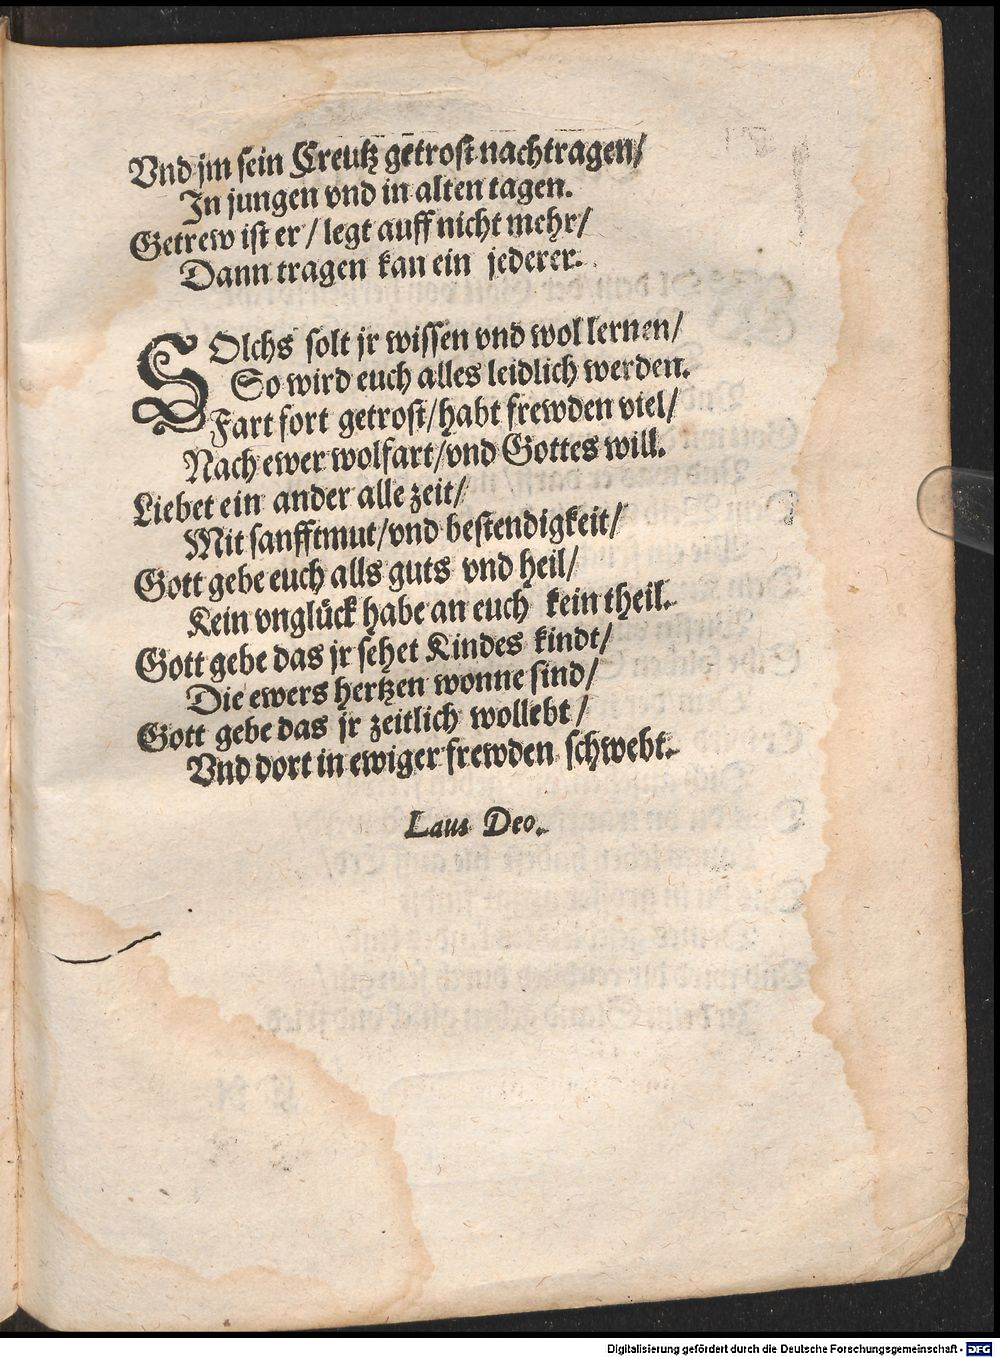 Vnd jm sein Creutz getrost nachtragen/
In jungen vnd in alten tagen.
Getrew ist er / legt auff nicht mehr/
Dann tragen kan ein jederer.
SOlchs solt jr wissen vnd wol lernen/
So wird euch alles leidlich werden.
Fart fort getrost/habt frewden viel/
Nach ewer wolfart/vnd Gottes will.
Liebet ein ander alle zeit/
Mit sanfftmut/vnd bestendigkeit/
Gott gebe euch alls guts vnd heil/
Kein vnglück habe an euch kein theil.
Gott gebe das jr sehet Kindes kindt/
Die ewers hertzen wonne sind/
Gott gebe das jr zeitlich wollebt/
Vnd dort in ewiger frewden schwebt.
Laus Deo.
Digitalisierung gefördert durch die Deutsche Forschungsgemeinschaft - DFG